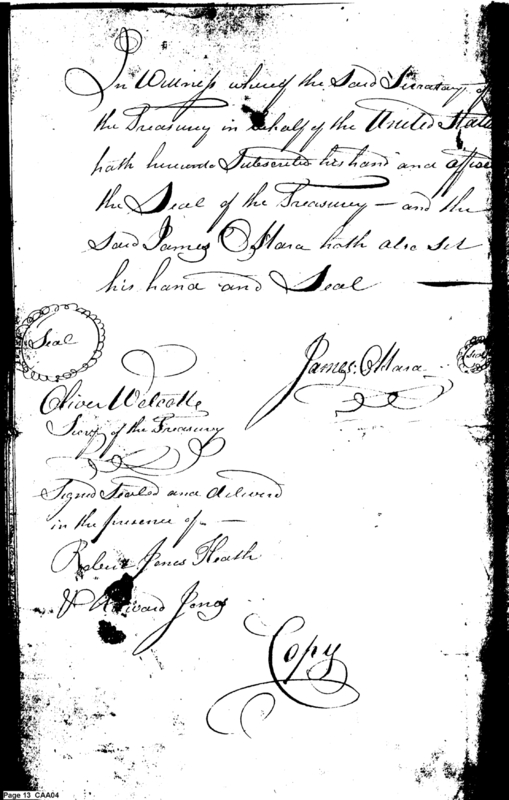 In Witness whereof the Said Secretary of
the Treasury in behalf of the United States
hath hereunto Subscribed his hand and affixed
the Seal of the Treasury — and the
Said James OHara hath also set
his hand and Seal
Seal
James OHara
Seal
Oliver Wolcotte
Secry of the Treasury
Signed Sealed and delivered
in the presence of —
Jones Heath
Edward Jones
Copy
Page 13 CAA04